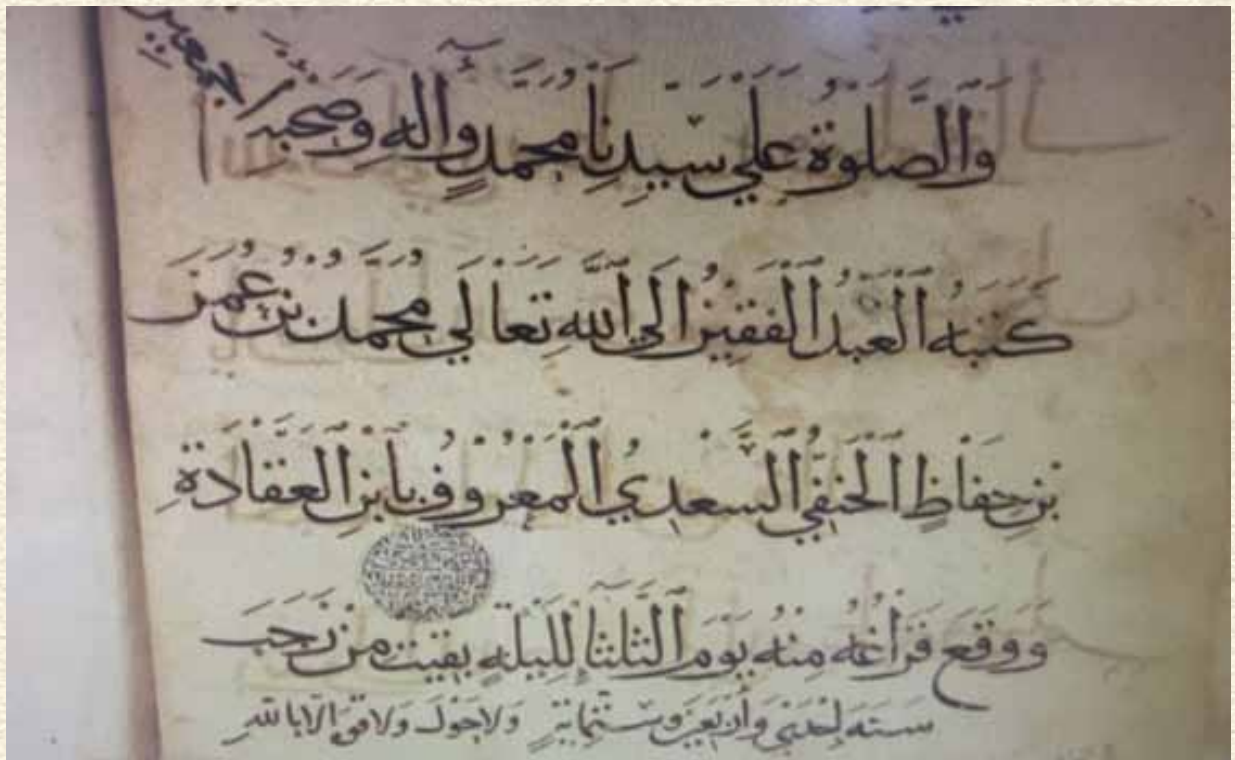 وَالصَّلَوٰةُ عَلَى سَيِّدِنَا مُحَمَّدٍ وَآلِهِ وَصَحْبِهِ أجمعين
كتبه العبد الفقير إلى الله تعالى محمد بن عمر
بن حفاظ الحنفي السعدي المعروف بابن العقادة
ووقع فراغه منه يوم الثلثا لليلة بقيت من رجب
سنة إحدى وأربعين وستمائة ولا حول ولا قوة إلا بالله